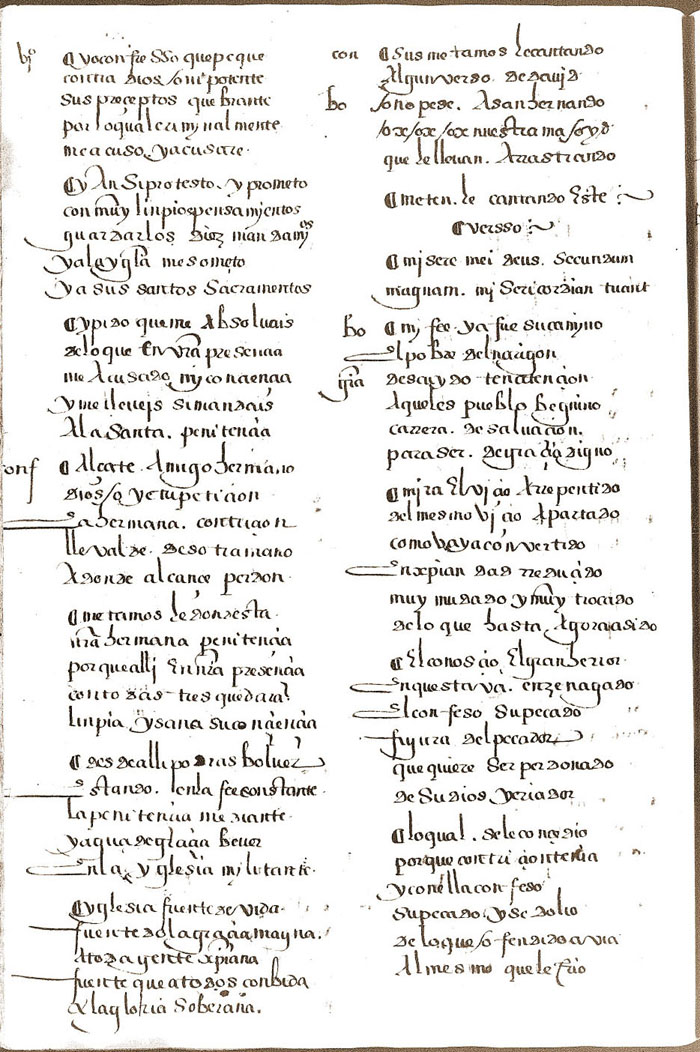 vjº ¶ yo confiesso que peque
contra dios omnipotente
sus preceptos quebrante
por lo qual criminalmente
me acuso, y acusare.
¶ y Ansi protesto. y prometo
con muy linpios pensamientos
guardarlos dioz mandamyºs
y a la yglª me someto
y a sus santos Sacramentos
¶ y pido que me Absoluais
de lo que En vrã presençia
me Acusado mj conçençia
y me lleueis si mandais
A la Santa. penitençia
conf ¶ Alçate. Amigo hermano
dios oyo tu petiçion
la hermana. contriçion
lleualde. de so tra mano
Adonde alcançe perdon
¶ metamosle donde esta
nrã hermana penitençia
porque alli En nrã presençia
con todas tres quedara
linpia y sana su conçençia
¶ desde alli podras boluer
Estando. en la fee constante
la penitençia mediante
y agua de graçia beuer
En la yglesia militante.
¶ yglesia fuente de vida
fuente do la graçia magna.
A toda gente xpiana
fuente que a todos conbida
A la gloria Soberana.
con ¶ Sus metamosle cantando
Algun verso de dauid
bo so no pese. A san hernando
que le lleuan. Arrastrando
¶ meten.le cantando Este
¶ versso
¶ misere mei deus. Secundum
magnam. miSericordian tuan
bo ¶ mj fee ya fue su camyno
El pobre del
yglª
Aques pueblo begnino
carrera. de saluaçion.
para ser. de graçia digno
¶ mira El viçio Arrepentido
del mesmo viçio Apartado
como vaya convertido
En xpiandad rreduçido
muy mudado y muy trocado
de lo que hasta. Agora a sido
¶ El conosçio. El gran herror
En questava. enzenagado
El confeso Su pecado
figura del pecador
que quiere Ser perdonado
de Su dios y criador
¶ lo qual. se le conçedio
porque contriçion tenia
y con ella confeso
Su pecado y se dolio
de lo que ofendido avia
Al mesmo que le crio